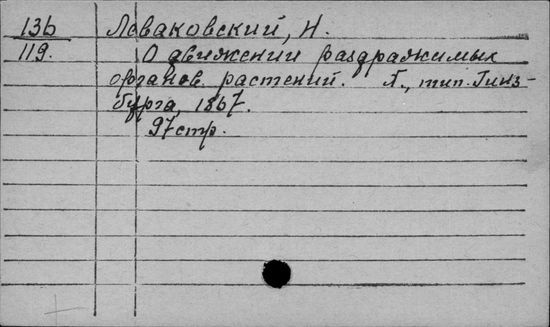 136 Леваковский, Н.
119. О движении раздражимых
органов растений. Х., тип. Гинз-
бурга, 1867.
97 стр.